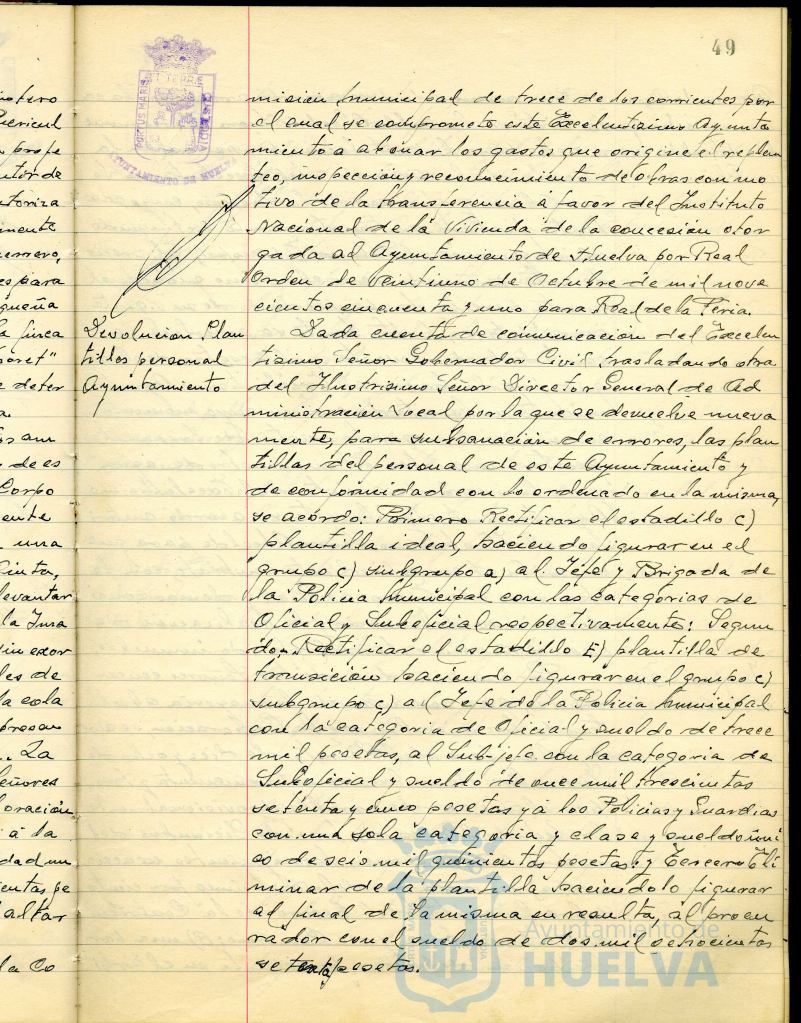 49
PORTUS MARIS
ET TERRE
CUSTODIA
AYUNTAMIENTO DE HUELVA
misión municipal de trece de los corrientes por
el cual se compromete este Excelentisimo Ayunta
miento a abonar los gastos que origine el replan
teo, inspección y reconocimiento de obras con mo
tivo de la transferencia a favor del Instituto
Nacional de la Vivienda de la concesión otor
gada al Ayuntamiento de Huelva por Real
Orden de veintiuno de Octubre de mil nove
cientos cincuenta y uno para Real de la Feria.
Devolucion Plan
tillas personal
Ayuntamiento
Dada cuenta de comunicación del Excelen
tisimo Señor Gobernador Civil trasladando otra
del Ilustrisimo Señor Director General de Ad
ministración Local por la que se devuelve nueva
mente, para subsanación de errores, las plan
tillas del personal de este Ayuntamiento y
de conformidad con lo ordenado en la misma,
se acordo: Primero Rectificar el estadillo C)
plantilla ideal, haciendo figurar en el
grupo c) subgrupo a) al Jefe y Brigada de
la Policia Municipal con las categorias de
Oficial y Suboficial respectivamente: Segun
do. Rectificar el estadillo E) plantilla de
transición haciendo figurar en el grupo c)
subgrupo c) al Jefe de la Policia Municipal
con la categoria de Oficial y sueldo de trece
mil pesetas, al Sub-jefe con la categoria de
Suboficial y sueldo de once mil trescientas
setenta y cinco pesetas y a los Policias y Guardias
con una sola categoria y clase y sueldo úni
co de seis mil quinientas pesetas: y Tercero Eli
minar de la plantilla haciendolo figurar
al final de la misma en resulta, al procu
rador con el sueldo de dos mil setecientas
setenta pesetas.
Ayuntamiento de
HUELVA